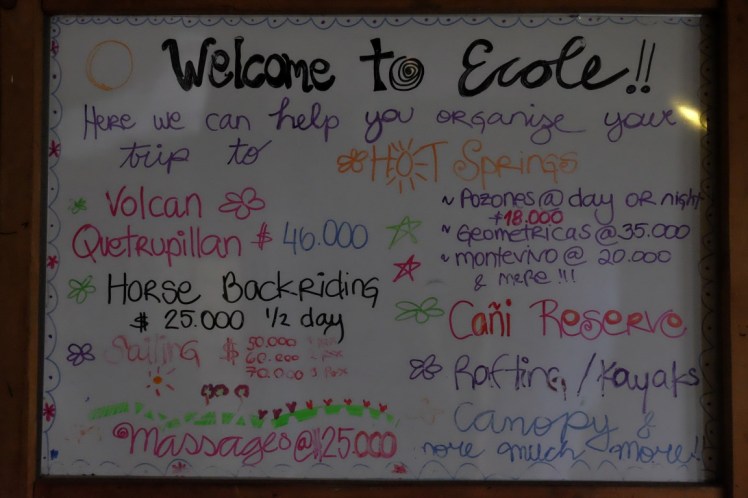 Welcome to Ecole!!
Here we can help you organize your
trip to
Volcan
Quetrupillan $ 46.000
Horse Backriding
$ 25.000 1/2 day
Sailing $ 50.000
60.000 2 pax
70.000 3 pax
Massages @ $25.000
HOT Springs
~ Pozones @ day OR night
18.000
~ Geometricas @ 35.000
~ montevivo @ 20.000
& more !!!
Cañi Reserve
Rafting / Kayaks
Canopy &
more much more!!